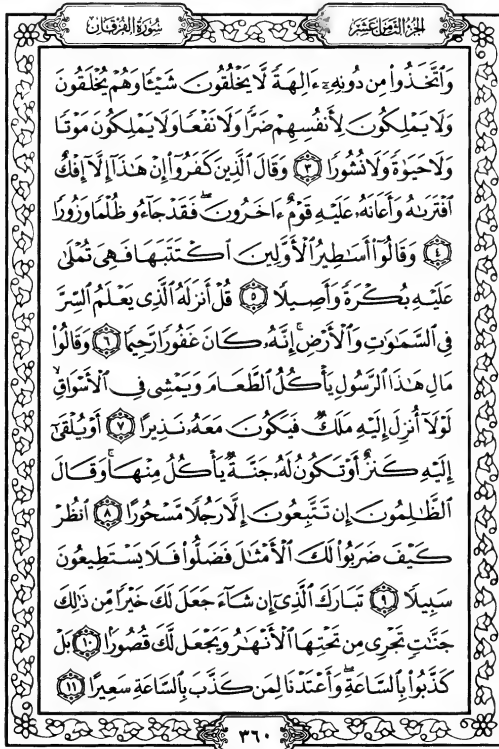 الجزء الثامن عشر
سورة الفرقان
وَٱتَّخَذُوا۟ مِن دُونِهِۦٓ ءَالِهَةً لَّا يَخْلُقُونَ شَيْـًٔا وَهُمْ يُخْلَقُونَ
وَلَا يَمْلِكُونَ لِأَنفُسِهِمْ ضَرًّا وَلَا نَفْعًا وَلَا يَمْلِكُونَ مَوْتًا
وَلَا حَيَوٰةً وَلَا نُشُورًا ٣ وَقَالَ ٱلَّذِينَ كَفَرُوٓا۟ إِنْ هَـٰذَآ إِلَّآ إِفْكٌ
ٱفْتَرَىٰهُ وَأَعَانَهُۥ عَلَيْهِ قَوْمٌ ءَاخَرُونَ ۖ فَقَدْ جَآءُو ظُلْمًا وَزُورًا
٤ وَقَالُوٓا۟ أَسَـٰطِيرُ ٱلْأَوَّلِينَ ٱكْتَتَبَهَا فَهِىَ تُمْلَىٰ
عَلَيْهِ بُكْرَةً وَأَصِيلًا ٥ قُلْ أَنزَلَهُ ٱلَّذِى يَعْلَمُ ٱلسِّرَّ
فِى ٱلسَّمَـٰوَٰتِ وَٱلْأَرْضِ ۚ إِنَّهُۥ كَانَ غَفُورًا رَّحِيمًا ٦ وَقَالُوا۟
مَالِ هَـٰذَا ٱلرَّسُولِ يَأْكُلُ ٱلطَّعَامَ وَيَمْشِى فِى ٱلْأَسْوَاقِ ۙ
لَوْلَآ أُنزِلَ إِلَيْهِ مَلَكٌ فَيَكُونَ مَعَهُۥ نَذِيرًا ٧ أَوْ يُلْقَىٰٓ
إِلَيْهِ كَنزٌ أَوْ تَكُونُ لَهُۥ جَنَّةٌ يَأْكُلُ مِنْهَا ۚ وَقَالَ
ٱلظَّـٰلِمُونَ إِن تَتَّبِعُونَ إِلَّا رَجُلًا مَّسْحُورًا ٨ ٱنظُرْ
كَيْفَ ضَرَبُوا۟ لَكَ ٱلْأَمْثَـٰلَ فَضَلُّوا۟ فَلَا يَسْتَطِيعُونَ
سَبِيلًا ٩ تَبَارَكَ ٱلَّذِىٓ إِن شَآءَ جَعَلَ لَكَ خَيْرًا مِّن ذَٰلِكَ
جَنَّـٰتٍ تَجْرِى مِن تَحْتِهَا ٱلْأَنْهَـٰرُ وَيَجْعَل لَّكَ قُصُورًۢا ١٠ بَلْ
كَذَّبُوا۟ بِٱلسَّاعَةِ ۖ وَأَعْتَدْنَا لِمَن كَذَّبَ بِٱلسَّاعَةِ سَعِيرًا ١١
٣٦٠